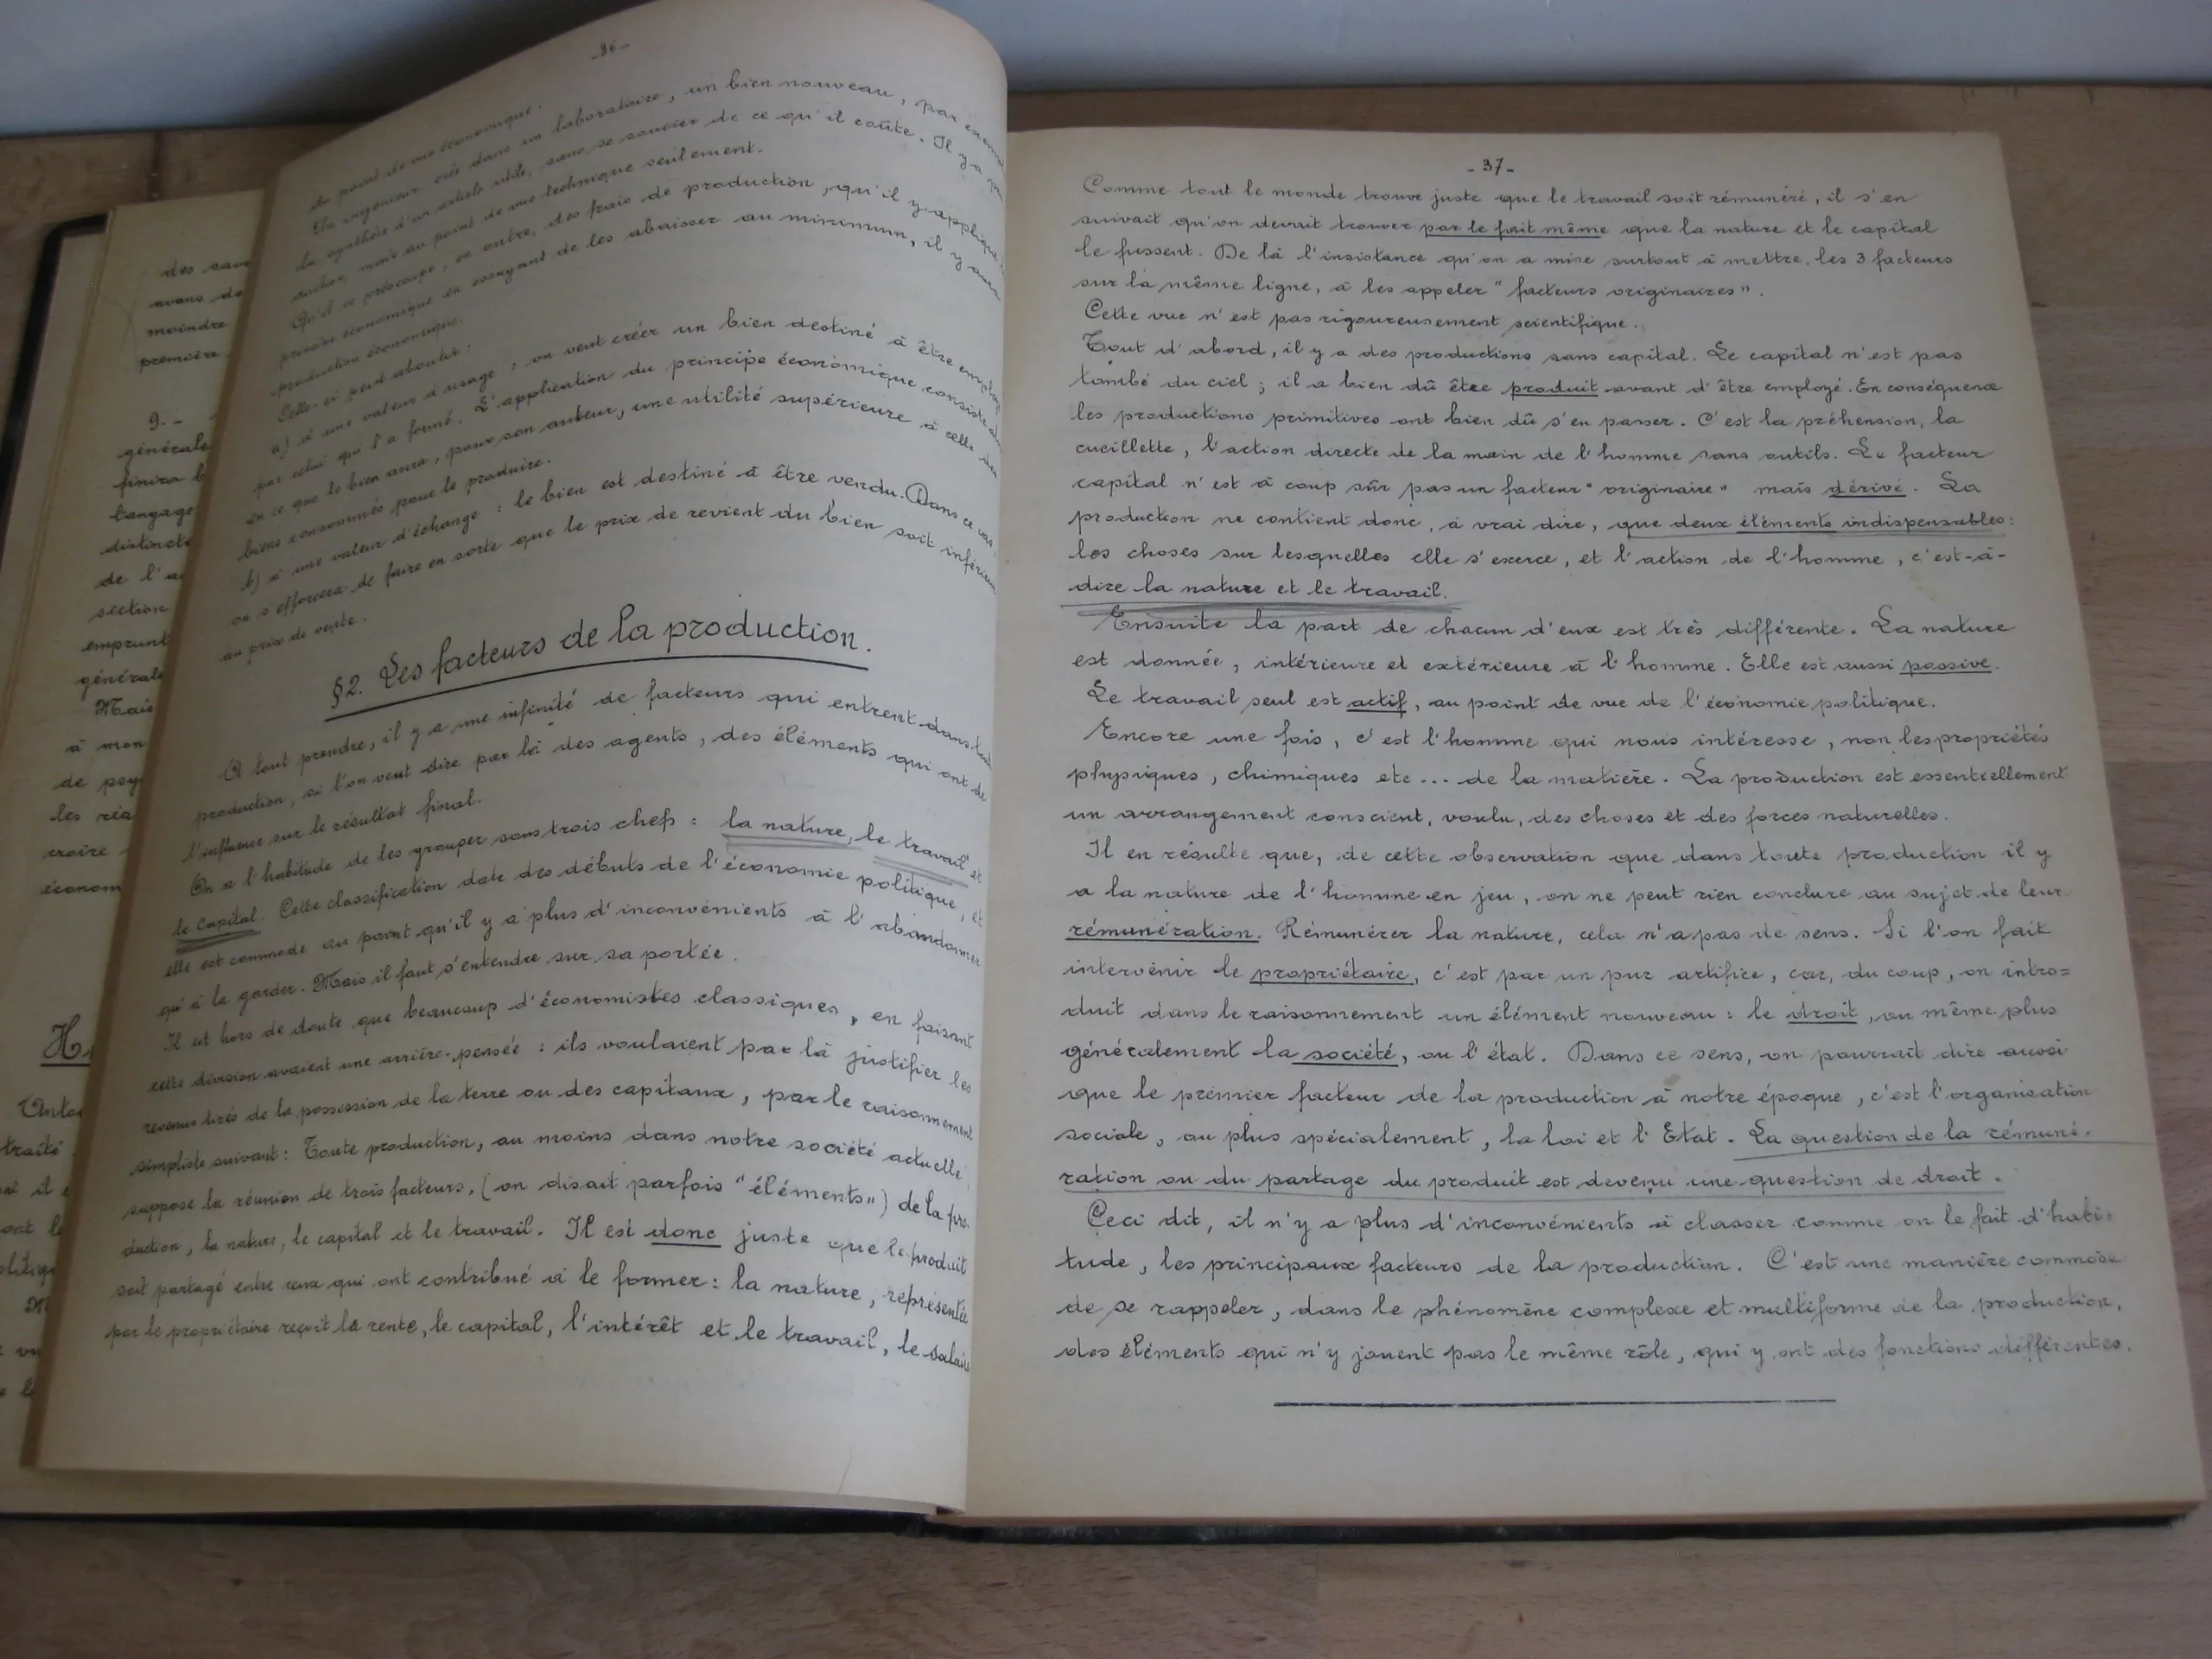 des
avons de
moindre
première
9. -
générale
langage
distincte
de l'
section
emprunt
générale
Mais
à mon
de
les
croire
économ
traité
-36-
du point de vue économique.
Un ingénieur crée dans un laboratoire, un bien nouveau, par
la synthèse d'un article utile, sans se soucier de ce qu'il coûte. Il y a
mais au point de vue technique seulement.
Qu'il se préoccupe, en outre, des frais de production, qu'il y applique
principe économique en essayant de les abaisser au minimum, il y aura
production économique.
Celle-ci peut aboutir :
a) à une valeur d'usage : on veut créer un bien destiné à être employé
par celui qui l'a formé. L'application du principe économique consiste
en ce que le bien aura, pour son auteur, une utilité supérieure à celle des
biens consommés pour le produire.
b) à une valeur d'échange : le bien est destiné à être vendu. Dans ce cas,
on s'efforcera de faire en sorte que le prix de revient du bien soit inférieur
au prix de vente.
§2. Les facteurs de la production.
A tout prendre, il y a une infinité de facteurs qui entrent dans
production, si l'on veut dire par là des agents, des éléments qui ont de
l'influence sur le résultat final.
On a l'habitude de les grouper sous trois chefs : la nature, le travail et
le capital. Cette classification date des débuts de l'économie politique, et
elle est commode au point qu'il y a plus d'inconvénients à l'abandonner
qu'à la garder. Mais il faut s'entendre sur sa portée.
Il est hors de doute que beaucoup d'économistes classiques, en faisant
cette division avaient une arrière-pensée : ils voulaient par là justifier les
revenus tirés de la possession de la terre ou des capitaux, par le raisonnement
simpliste suivant : Toute production, au moins dans notre société actuelle
suppose la réunion de trois facteurs, (on disait parfois "éléments") de la pro-
duction, la nature, le capital et le travail. Il est donc juste que le produit
soit partagé entre ceux qui ont contribué à le former : la nature, représentée
par le propriétaire reçoit la rente, le capital, l'intérêt et le travail, le salaire
-37-
Comme tout le monde trouve juste que le travail soit rémunéré, il s'en
suivait qu'on devrait trouver par le fait même que la nature et le capital
le fussent. De là l'insistance qu'on a mise surtout à mettre les 3 facteurs
sur la même ligne, à les appeler "facteurs originaires".
Cette vue n'est pas rigoureusement scientifique.
Tout d'abord, il y a des productions sans capital. Le capital n'est pas
tombé du ciel ; il a bien dû être produit avant d'être employé. En conséquence
les productions primitives ont bien dû s'en passer. C'est la préhension, la
cueillette, l'action directe de la main de l'homme sans outils. Le facteur
capital n'est à coup sûr pas un facteur "originaire" mais dérivé. La
production ne contient donc, à vrai dire, que deux éléments indispensables :
les choses sur lesquelles elle s'exerce, et l'action de l'homme, c'est-à-
dire la nature et le travail.
Ensuite la part de chacun d'eux est très différente. La nature
est donnée, intérieure et extérieure à l'homme. Elle est aussi passive.
Le travail seul est actif, au point de vue de l'économie politique.
Encore une fois, c'est l'homme qui nous intéresse, non les propriétés
physiques, chimiques etc... de la matière. La production est essentiellement
un arrangement conscient, voulu, des choses et des forces naturelles.
Il en résulte que, de cette observation que dans toute production il y
a la nature de l'homme en jeu, on ne peut rien conclure au sujet de leur
rémunération. Rémunérer la nature, cela n'a pas de sens. Si l'on fait
intervenir le propriétaire, c'est par un pur artifice, car, du coup, on intro=
duit dans le raisonnement un élément nouveau : le droit, ou même plus
généralement la société, ou l'état. Dans ce sens, on pourrait dire aussi
que le premier facteur de la production à notre époque, c'est l'organisation
sociale, ou plus spécialement, la loi et l'Etat. La question de la rémuné-
ration ou du partage du produit est devenu une question de droit.
Ceci dit, il n'y a plus d'inconvénients à classer comme on le fait d'habi-
tude, les principaux facteurs de la production. C'est une manière commode
de se rappeler, dans le phénomène complexe et multiforme de la production,
des éléments qui n'y jouent pas le même rôle, qui y ont des fonctions différentes.